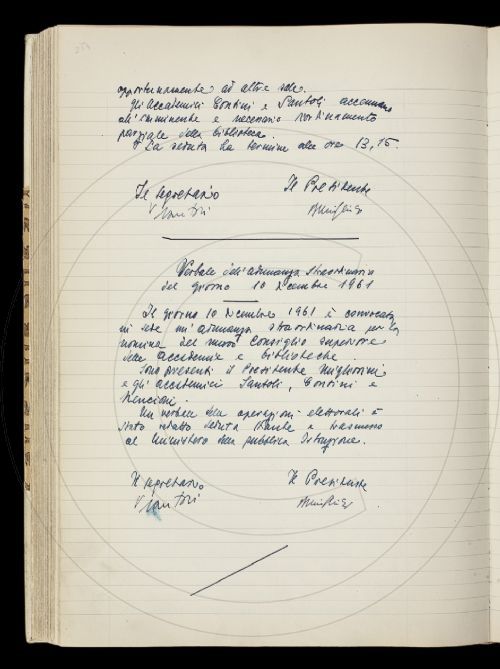 opportunamente ad altre sale.
Gli Accademici Contini e Santoli accennano
all'imminente e necessario riordinamento
parziale della biblioteca.
La seduta ha termine alle ore 13,15.
Il Segretario Il Presidente
V Santoli BMigliorini
Verbale dell'adunanza straordinaria
del giorno 10 dicembre 1961
Il giorno 10 Dicembre 1961 è convocata
in sede un'adunanza straordinaria per la
nomina del nuovo Consiglio superiore
delle Accademie e biblioteche.
Sono presenti il Presidente Migliorini
e gli accademici Santoli, Contini e
Nencioni.
Un verbale delle operazioni elettorali è
stato redatto seduta stante e trasmesso
al Ministero della pubblica Istruzione.
Il Segretario Il Presidente
V Santoli BMigliorini